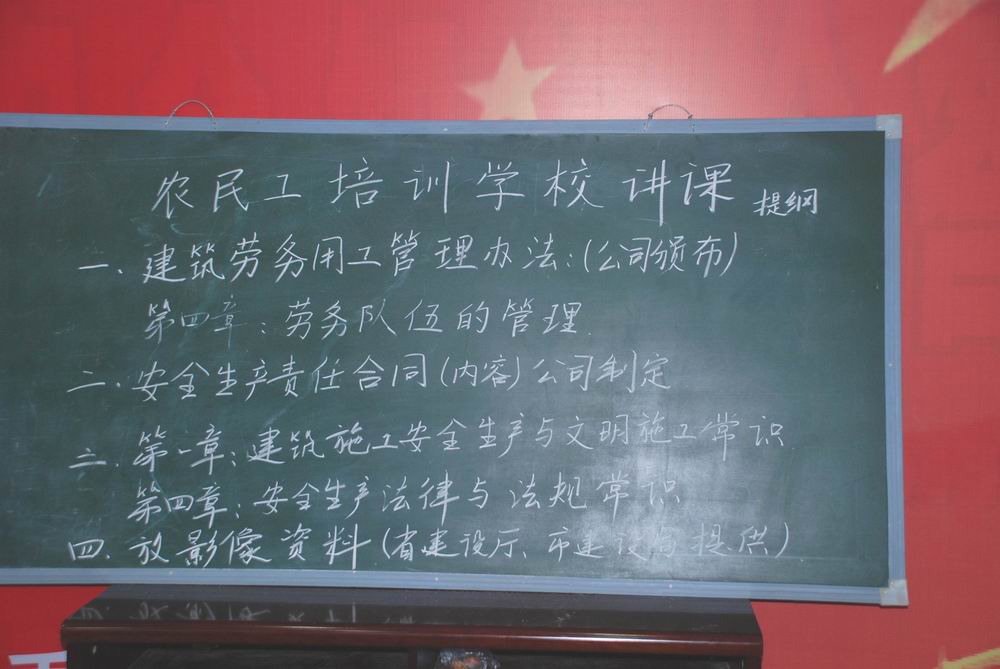 农民工培训学校讲课提纲
一.建筑劳务用工管理办法:(公司颁布)
第四章:劳务队伍的管理.
二.安全生产责任合同(内容)公司制定
三.第一章:建筑施工安全生产与文明施工常识.
第四章:安全生产法律与法规常识
四.放影像资料(省建设厅、市建设局提供)